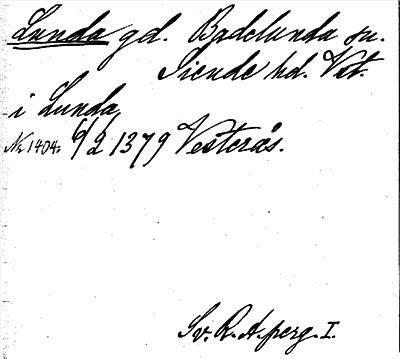 Lunda gd. Badelunda sn.
Siende hd. Vst.
i Lunda
Nr 1404. 6/2 1379 Vesterås.
Sv. R. A. perg. I.